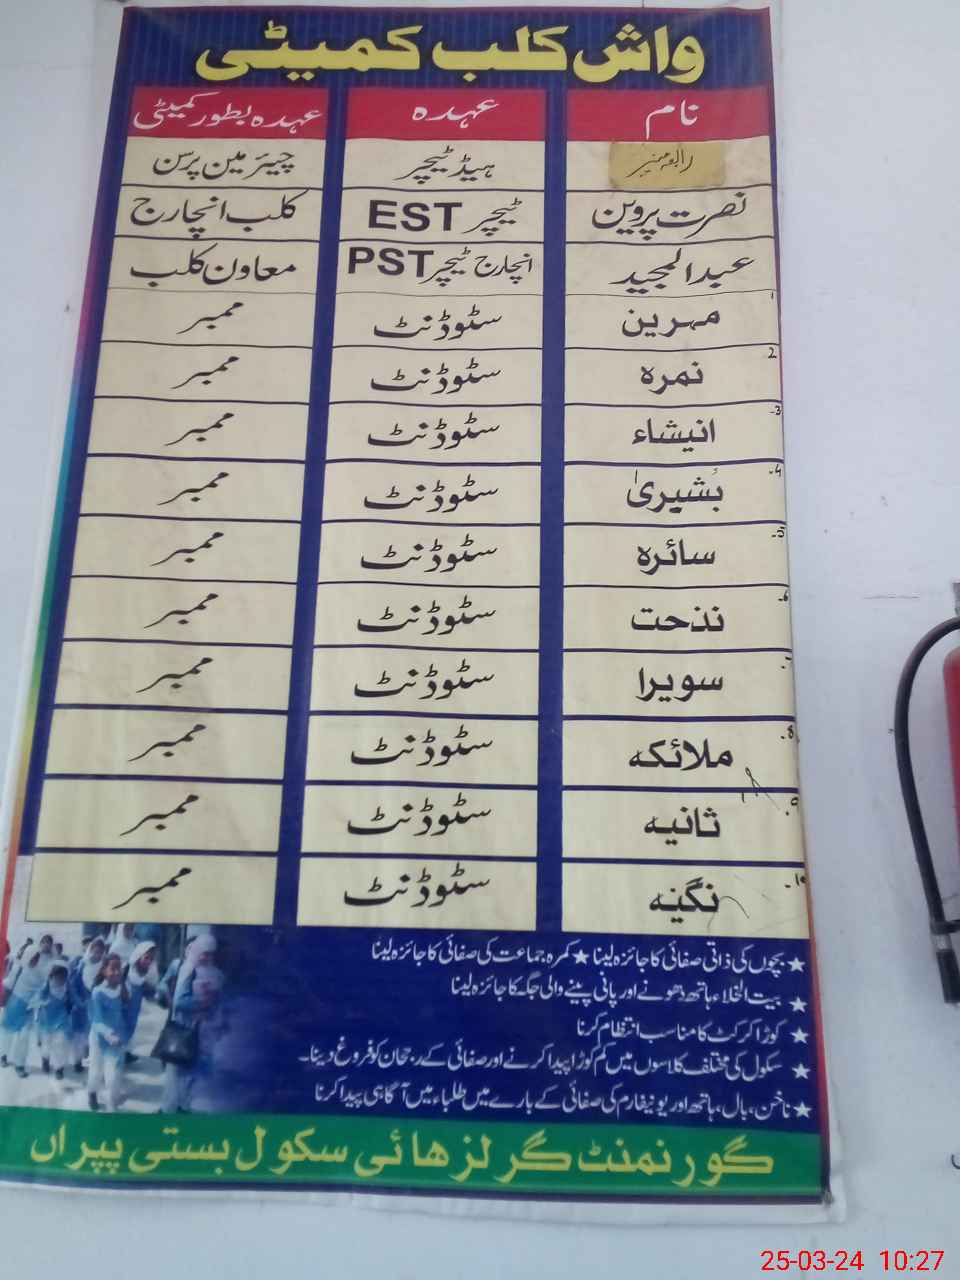 واش کلب کمیٹی
نام عہدہ عہدہ بطور کمیٹی
رابعہ منیر ہیڈ ٹیچر چیئر مین پرسن
نصرت پروین EST ٹیچر کلب انچارج
عبدالمجید انچارج ٹیچر PST معاون کلب
1 مہرین سٹوڈنٹ ممبر
2 نمرہ سٹوڈنٹ ممبر
3- انیشاء سٹوڈنٹ ممبر
4- بُشیریٰ سٹوڈنٹ ممبر
5- سائرہ سٹوڈنٹ ممبر
6- نذحت سٹوڈنٹ ممبر
7- سویرا سٹوڈنٹ ممبر
8- ملائکہ سٹوڈنٹ ممبر
9- ثانیہ سٹوڈنٹ ممبر
10- نگینہ سٹوڈنٹ ممبر
★ بچوں کی ذاتی صفائی کا جائزہ لینا ★ کمرہ جماعت کی صفائی کا جائزہ لینا
★ بیت الخلاء ہاتھ دھونے اور پانی پینے والی جگہ کا جائزہ لینا
★ کوڑا کرکٹ کا مناسب انتظام کرنا
★ سکول کی مختلف کلاسوں میں کم کوڑا پیدا کرنے اور صفائی کے رجحان کو فروغ دینا۔
★ ناخن، بال، ہاتھ اور یونیفارم کی صفائی کے بارے میں طلباء میں آگاہی پیدا کرنا
گورنمنٹ گرلز ھائی سکول بستی پپراں
25-03-24 10:27